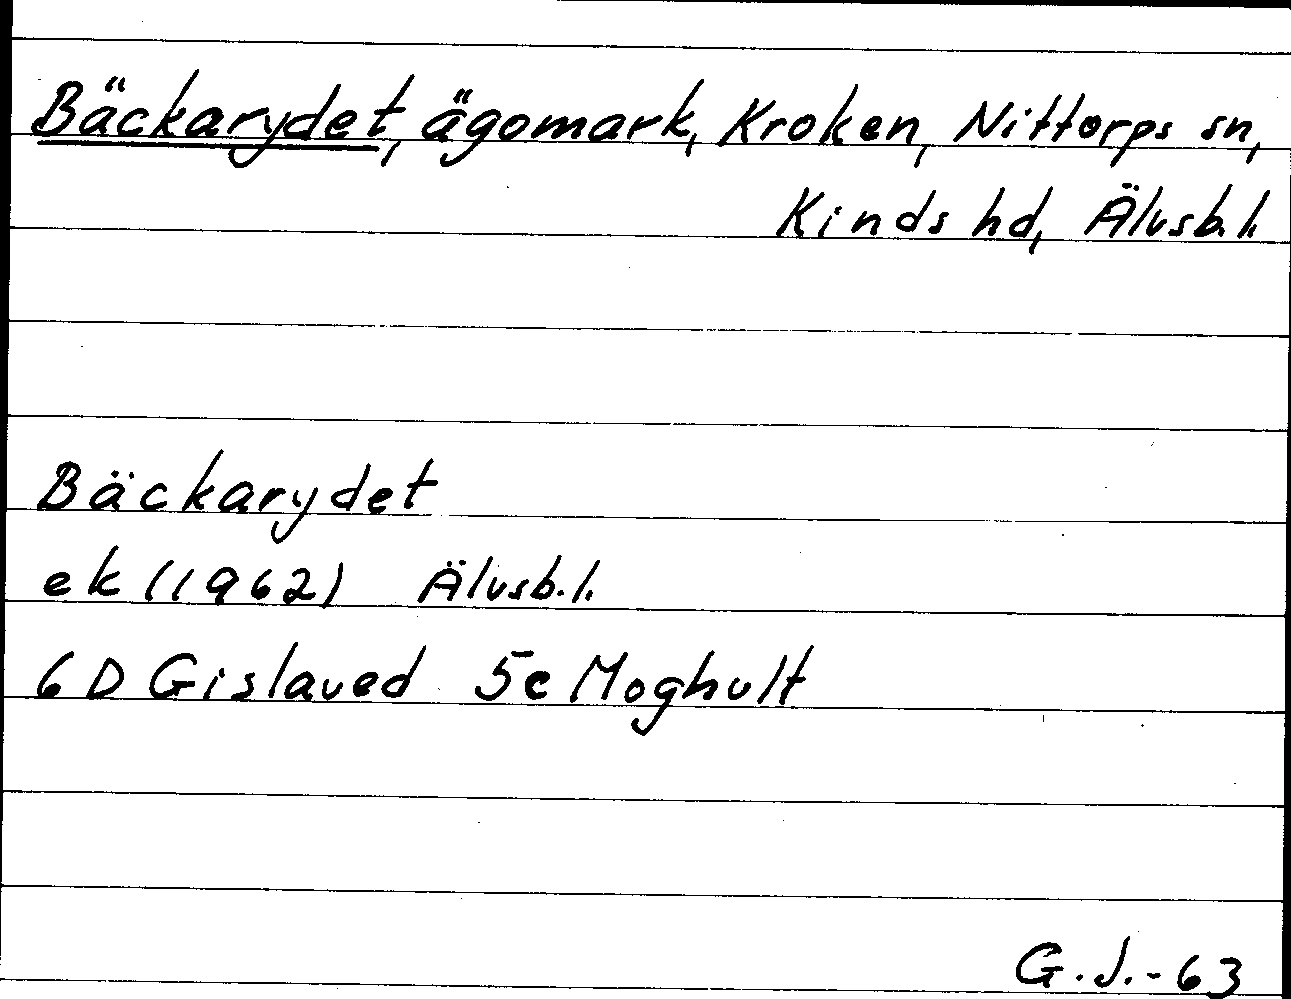 Bäckarydet, ägomark, Kroken, Nittorps sn,
Kinds hd, Älvsb.l.
Bäckarydet
ek (1962) Älvsb.l.
6D Gislaved 5e Moghult
G.J.-63